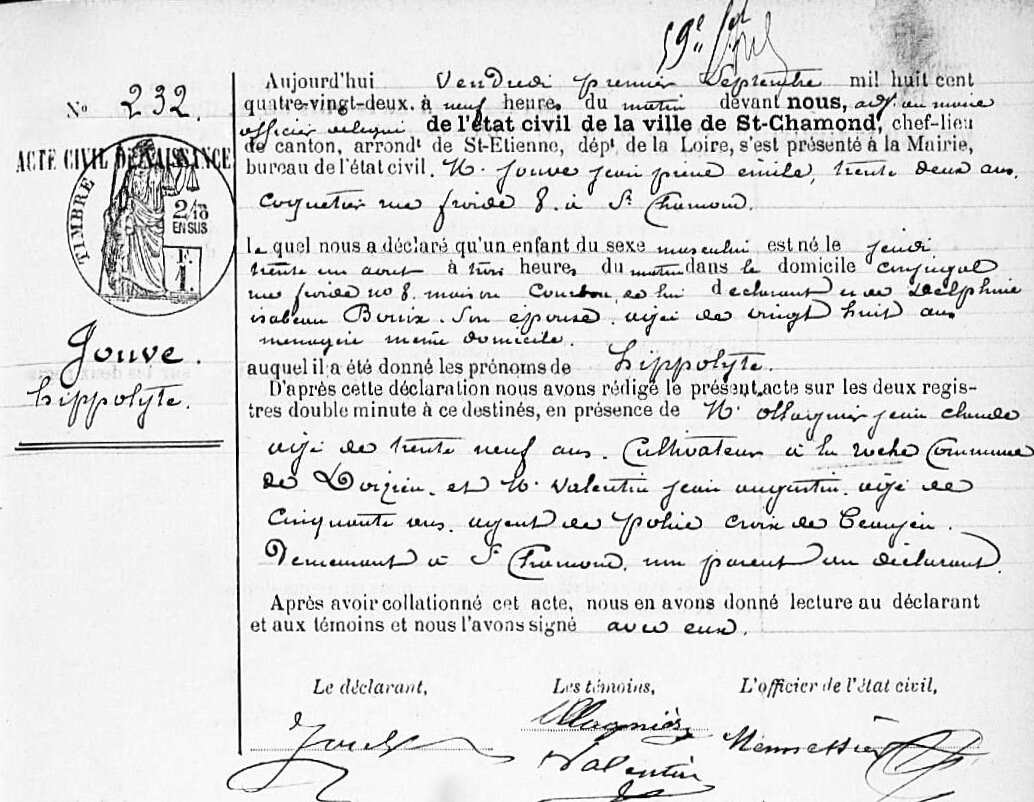 59e
N° 232.
ACTE CIVIL DE NAISSANCE
TIMBRE
2/10
EN SUS
F.
1.
Jouve.
hippolyte.
Aujourd'hui Vendredi premier Septembre mil huit cent
quatre-vingt-deux, à neuf heures du matin devant nous, adjt au maire
officier délégué de l'état civil de la ville de St-Chamond, chef-lieu
de canton, arrondt de St-Etienne, dépt de la Loire, s'est présenté à la Mairie,
bureau de l'état civil. M. Jouve jean pierre émile, trente deux ans.
Coquetier rue froide 8. à St Chamond.
le quel nous a déclaré qu'un enfant du sexe masculin est né le jeudi
trente un aout à trois heures du matin dans le domicile conjugal
rue froide no 8. maison Courbon, de lui déclarant et de Delphine
isabeau son épouse. agée de vingt huit ans
menagère même domicile.
auquel il a été donné les prénoms de hippolyte.
D'après cette déclaration nous avons rédigé le présent acte sur les deux regis-
tres double minute à ce destinés, en présence de M. ollagnier jean claude
agé de trente neuf ans. Cultivateur à la roche Commune
de Doizieu. et M. Valentin jean augustin. agé de
cinquante ans. agent de police croix de Beaujeu.
Demeurant à St Chamond. non parent au déclarant.
Après avoir collationné cet acte, nous en avons donné lecture au déclarant
et aux témoins et nous l'avons signé avec eux.
Le déclarant, Les témoins, L'officier de l'état civil,
Jouve Ollagnier
Valentin